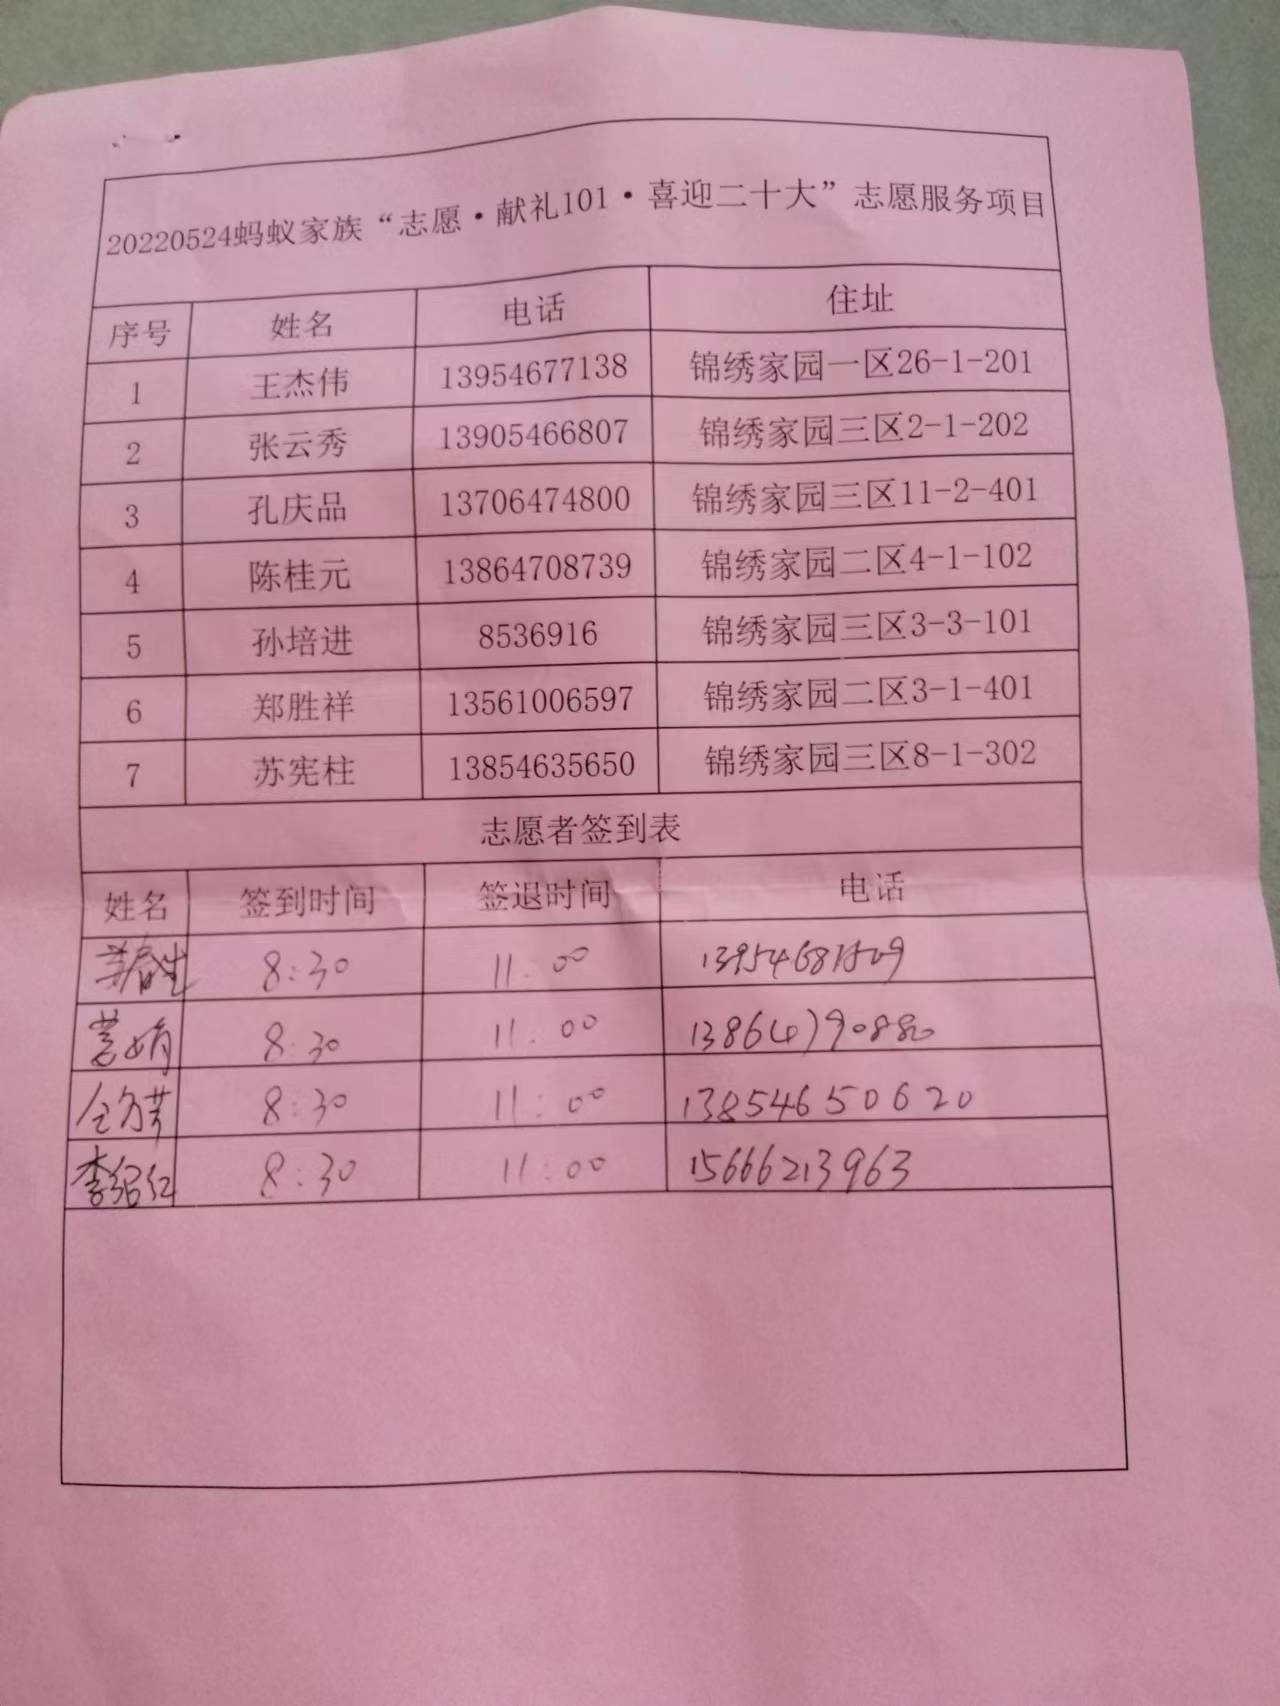 20220524蚂蚁家族“志愿·献礼101·喜迎二十大”志愿服务项目
序号 姓名 电话 住址
1 王杰伟 13954677138 锦绣家园一区26-1-201
2 张云秀 13905466807 锦绣家园三区2-1-202
3 孔庆品 13706474800 锦绣家园三区11-2-401
4 陈桂元 13864708739 锦绣家园二区4-1-102
5 孙培进 8536916 锦绣家园三区3-3-101
6 郑胜祥 13561006597 锦绣家园二区3-1-401
7 苏宪柱 13854635650 锦绣家园三区8-1-302
志愿者签到表
姓名 签到时间 签退时间 电话
春生 8:30 11:00
8:30 11:00 13864790880
8:30 11:00 13854650620
李绍红 8:30 11:00 15666213963